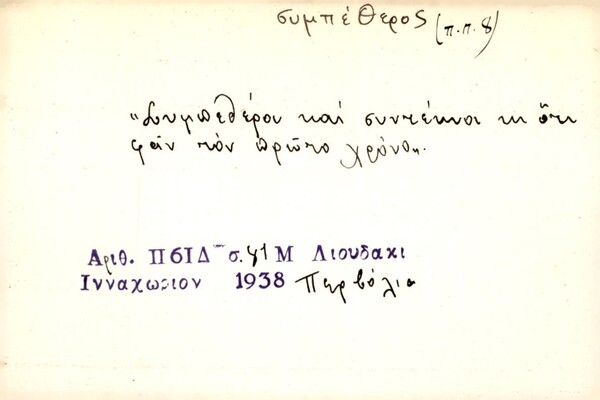 συμπέθερος (π.π. 8)
"Συμπεθέροι καί συντέκνοι κι ὅτι
φάν τόν πρῶτο χρόνο".
Αριθ. Πϐ1Δ σ. 41 Μ Λιουδακι
Ινναχωριον 1938 Περβόλια